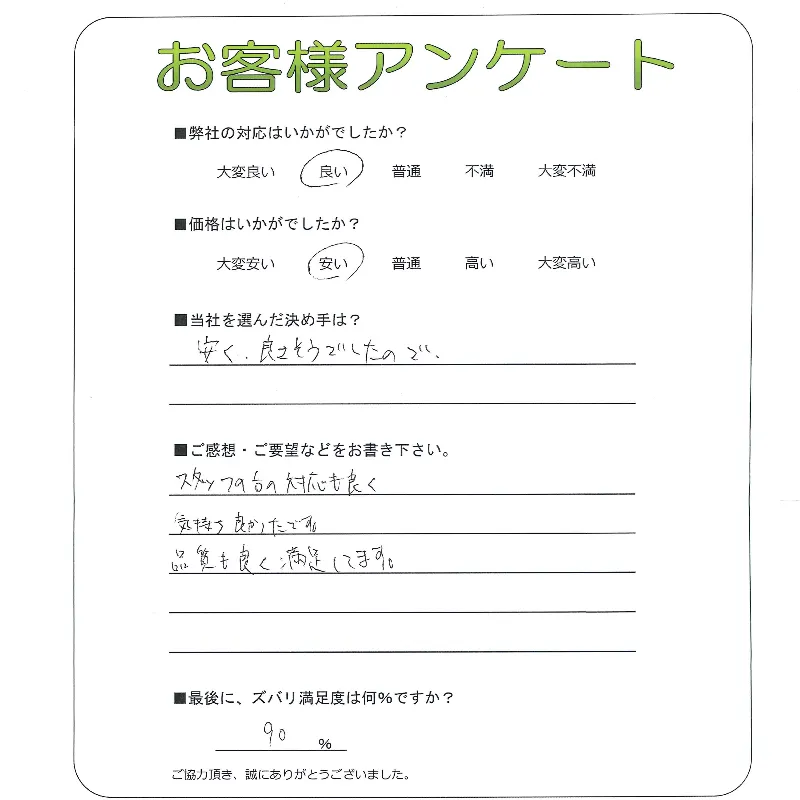 お客様アンケート
■弊社の対応はいかがでしたか？
大変良い 良い 普通 不満 大変不満
■価格はいかがでしたか？
大変安い 安い 普通 高い 大変高い
■当社を選んだ決め手は？
安く、良さそうでしたので、
■ご感想・ご要望などをお書き下さい。
スタッフの の対応も良く
気持ち良かったです。
品質も良く満足してます。
■最後に、ズバリ満足度は何%ですか？
90 %
ご協力頂き、誠にありがとうございました。